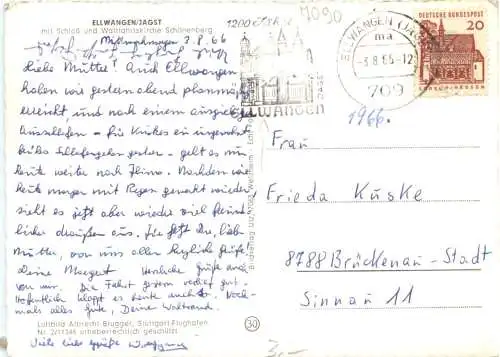 ELLWANGEN/JAGST
mit Schloß und Wallfahrtskirche Schönenberg
3.8.66
Liebe Mutter! Auch Ellwangen
haben wir gestern abend planmäßig
erreicht und nach einem ausgiebigen
Ausschlafen - für
gestern - geht es nun
heute weiter nach
heute morgen mit Regen geweckt wurden
sieht es jetzt aber wieder viel freund-
licher draußen aus. Für jetzt Dir, liebe
Mutter, von uns allen herzliche Grüße!
Deine Margret Herzliche Grüße auch
von mir. Die Fahrt gestern verlief gut.
Hoffentlich klappt es heute auch so. Noch-
mals alles Gute, Deine Waltraud.
Luftbild Albrecht Brugger, Stuttgart-Flughafen
Nr. 2/11346 urheberrechtlich geschützt
Viele liebe Grüße
30
7090
1200
ELLWANGEN
ELLWANGEN (JAGST)
ma
-3.8.66-12
709
DEUTSCHE BUNDESPOST
20
LORSCH/HESSEN
1966.
Frau
Frieda Kuske
8788 Brückenau-Stadt
Sinnau 11
3,-